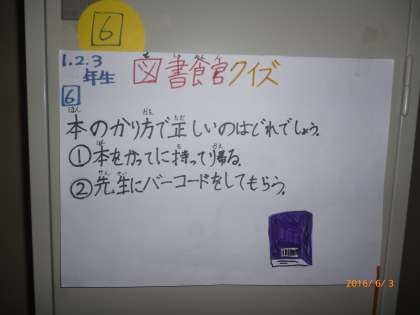 6
1.2.3年生
図書館クイズ
6
本のかり方で正しいのはどれでしょう。
①本をかってに持って帰る。
②先生にバーコードをしてもらう。
2016/6/3